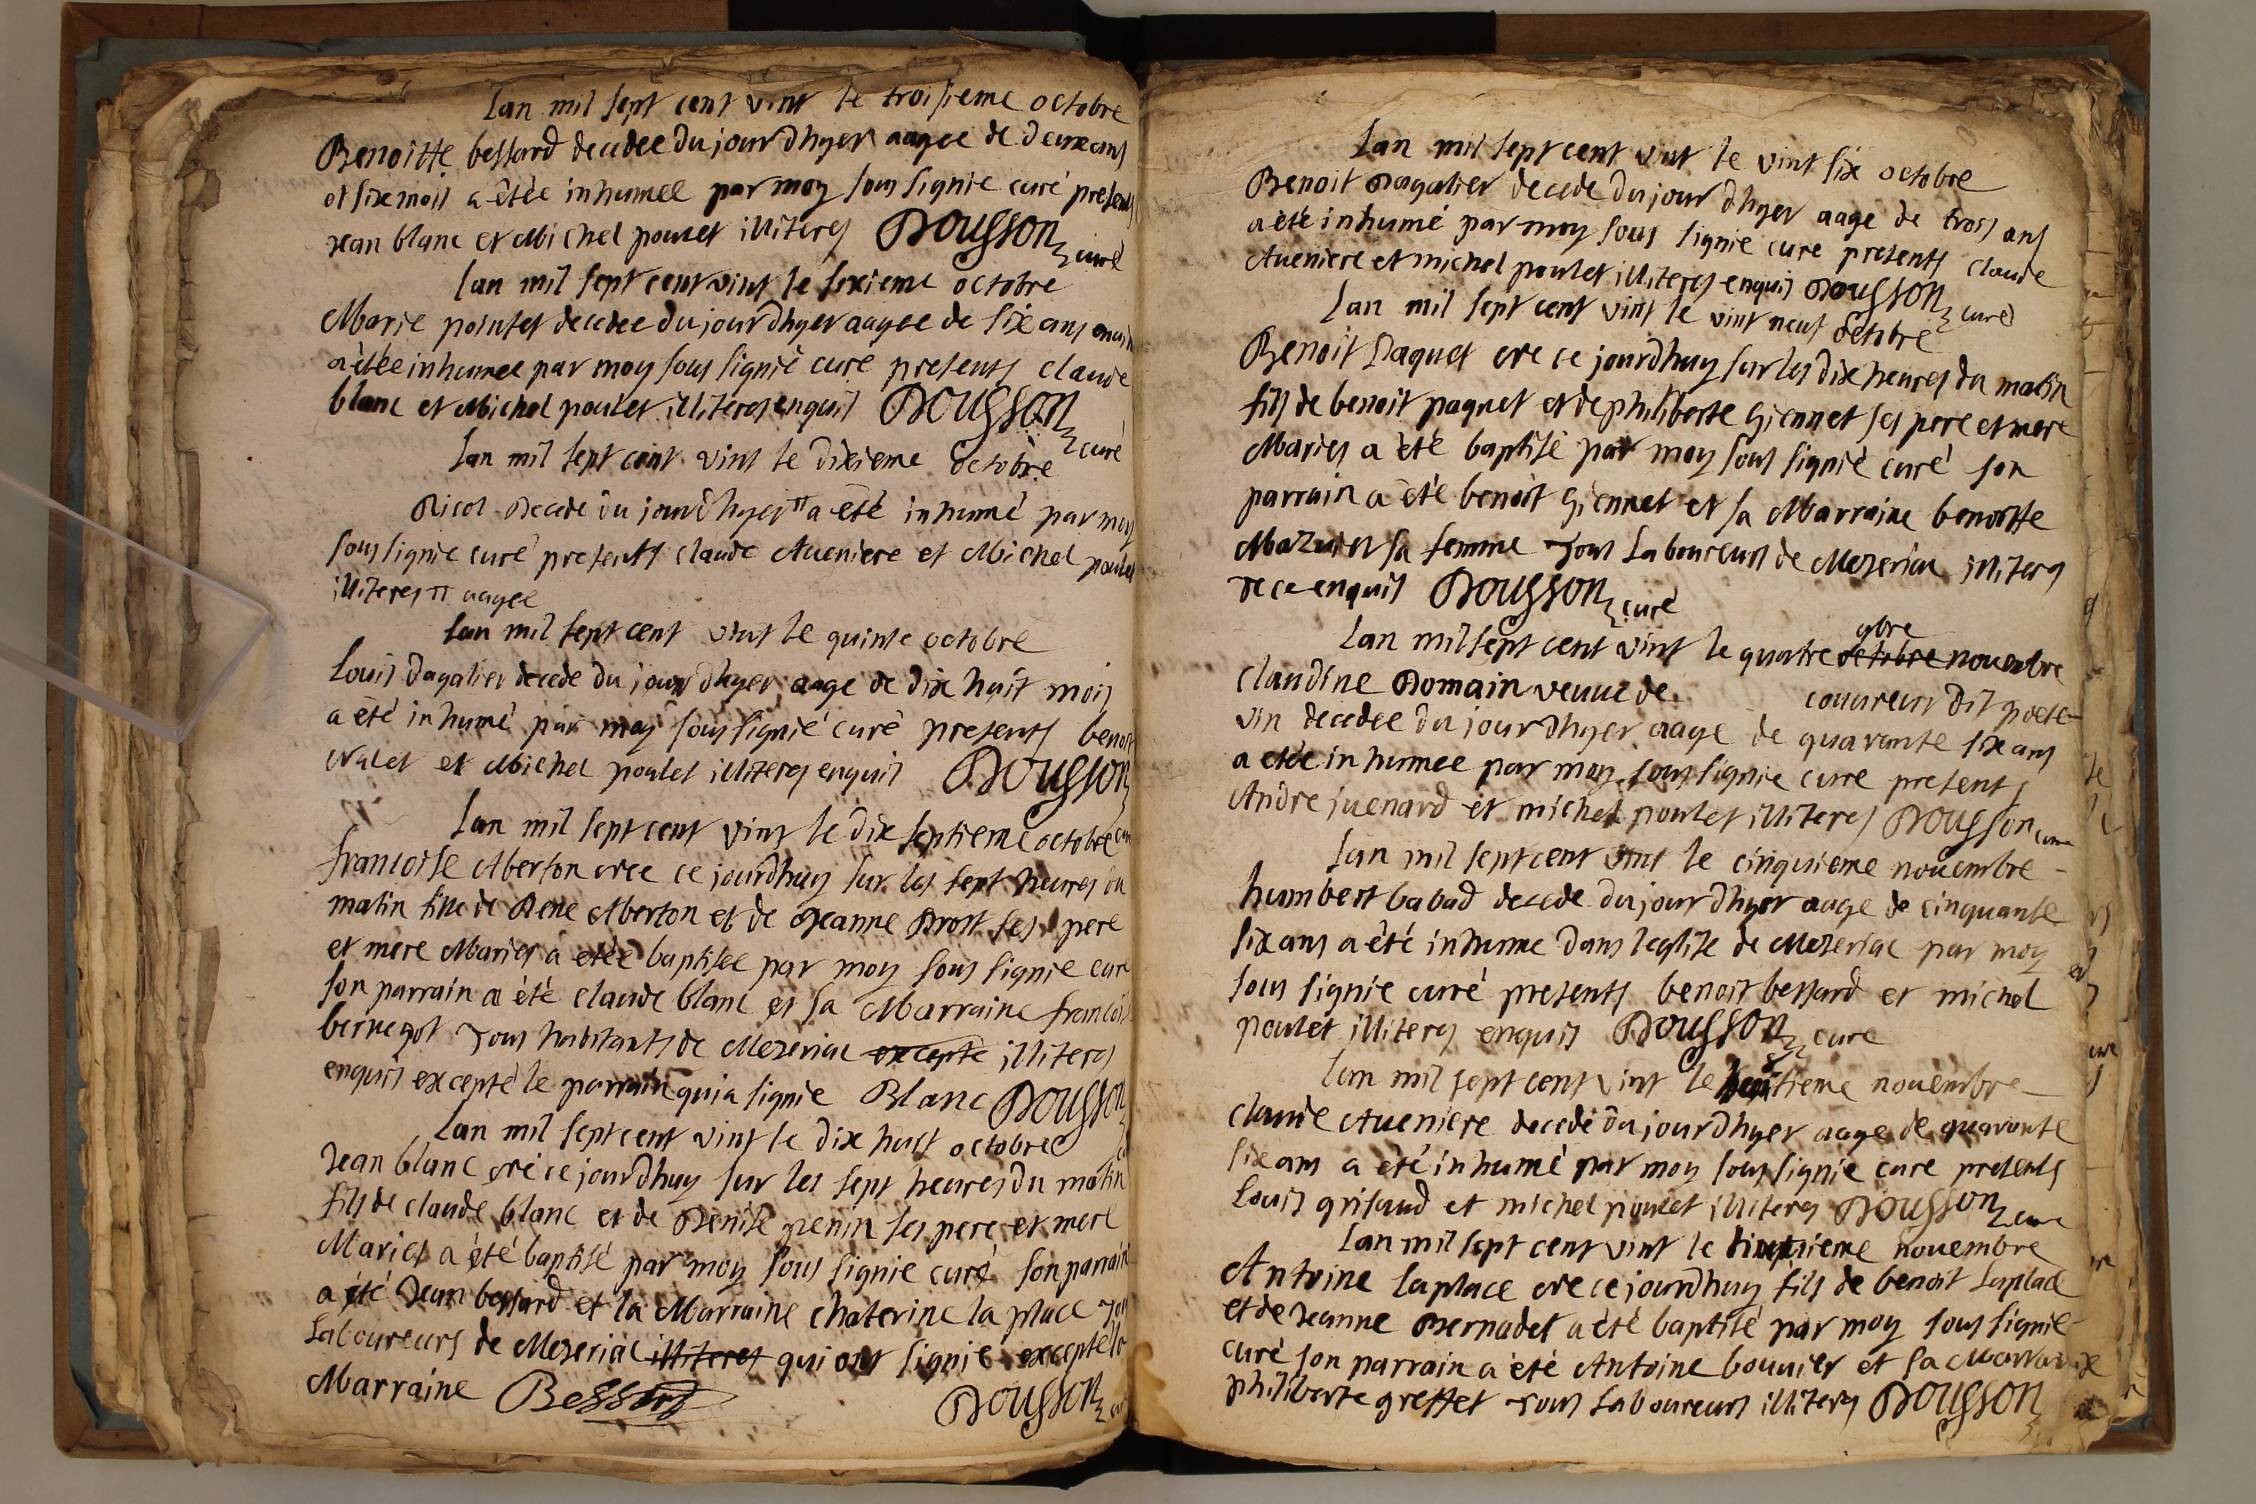 Lan mil sept cent vint le troisieme octobre
Benoitte bessard decedee du jour dhyer aagee de deux ans
et six mois a étée inhumee par moy sous signie curé presents
Jean blanc et Michel poulet illiteres Dousson curé
Lan mil sept cent vint le sixieme octobre
Marie pointet decedee du jour dhyer aagee de six ans
a étée inhumee par moy sous signié curé presents claude
blanc et Michel poulet illiteres enquis Dousson curé
Lan mil sept cent vint le dixieme octobre
Nicol decede du jour dhyer π a été inhumé par moy
sous signie curé presents claude Aueniere et Michel poulet
illiteres π aagee
Lan mil sept cent vint le quinte octobre
Louis dagalier decede du jour dhyer aage de dix huit mois
a été inhumé par moy sous signié curé presents benoit
et Michel poulet illiteres enquis Dousson
Lan mil sept cent vint le dix septieme octobre
francoise Aberton cree ce jourdhuy sur les sept heures du
matin fille de Rene Aberton et de Jeanne Drost ses pere
et mere Maries a étée baptisee par moy sous signie curé
son parrain a été claude blanc et sa Marraine francois
bernegot Tous habitants de Mezeriac excepte illiteres
enquis excepté le parrain qui a signie Blanc Dousson
Lan mil sept cent vint le dix huit octobre
Jean blanc cré ce jourdhuy sur les sept heures du matin
fils de claude blanc et de Denise penin ses pere et mere
Maries a été baptisé par moy sous signie curé son parrain
a été Jean bessard et la Marraine chaterine la place Tous
Laboureurs de Mezeriac illiteres qui ont signie excepté la
Marraine Bessard Dousson
Lan mil sept cent vint le vint six octobre
Benoit dagalier decede du jour dhyer aage de trois ans
a été inhumé par moy sous signie curé presents claude
Aueniere et michel poulet illiteres enquis Dousson curé
Lan mil sept cent vint le vint neuf octobre
Benoit Paquet cre ce jourdhuy sur les dix heures du matin
fils de benoit paquet et de philiberte Giennet ses pere et mere
Maries a été baptisé par moy sous signié curé son
parrain a été benoit Giennet et sa Marraine benoitte
Mazuiet sa femme Tous Laboureurs de Mezeriac illiteres
de ce enquis Dousson curé
9bre
Lan mil sept cent vint le quatre octobre nouembre
claudine Domain veuue de couureur dit poete
vin decedee du jour dhyer aage de quarante six ans
a étée inhumee par moy sous signie curé presents
Andre juenard et michel poulet illiteres Dousson curé
Lan mil sept cent vint le cinquieme nouembre
humbert babad decede du jour dhyer aage de cinquante
six ans a été inhume dans leglise de Mezeriac par moy
sous signie curé presents benoit bessard et michel
poulet illiteres enquis Dousson cure
Lan mil sept cent vint le huitieme nouembre
claude Aueniere decedé du jour dhyer aage de quarante
six ans a été inhumé par moy sous signie curé presents
Louis grisaud et michel poulet illiteres Dousson cure
Lan mil sept cent vint le nouembre
Antoine Laplace cre ce jourdhuy fils de benoit Laplace
et de Jeanne Bernadet a été baptisé par moy sous signie
curé son parrain a été Antoine bouuier et sa Marraine
philiberte greffet Tous Laboureurs illiteres Dousson